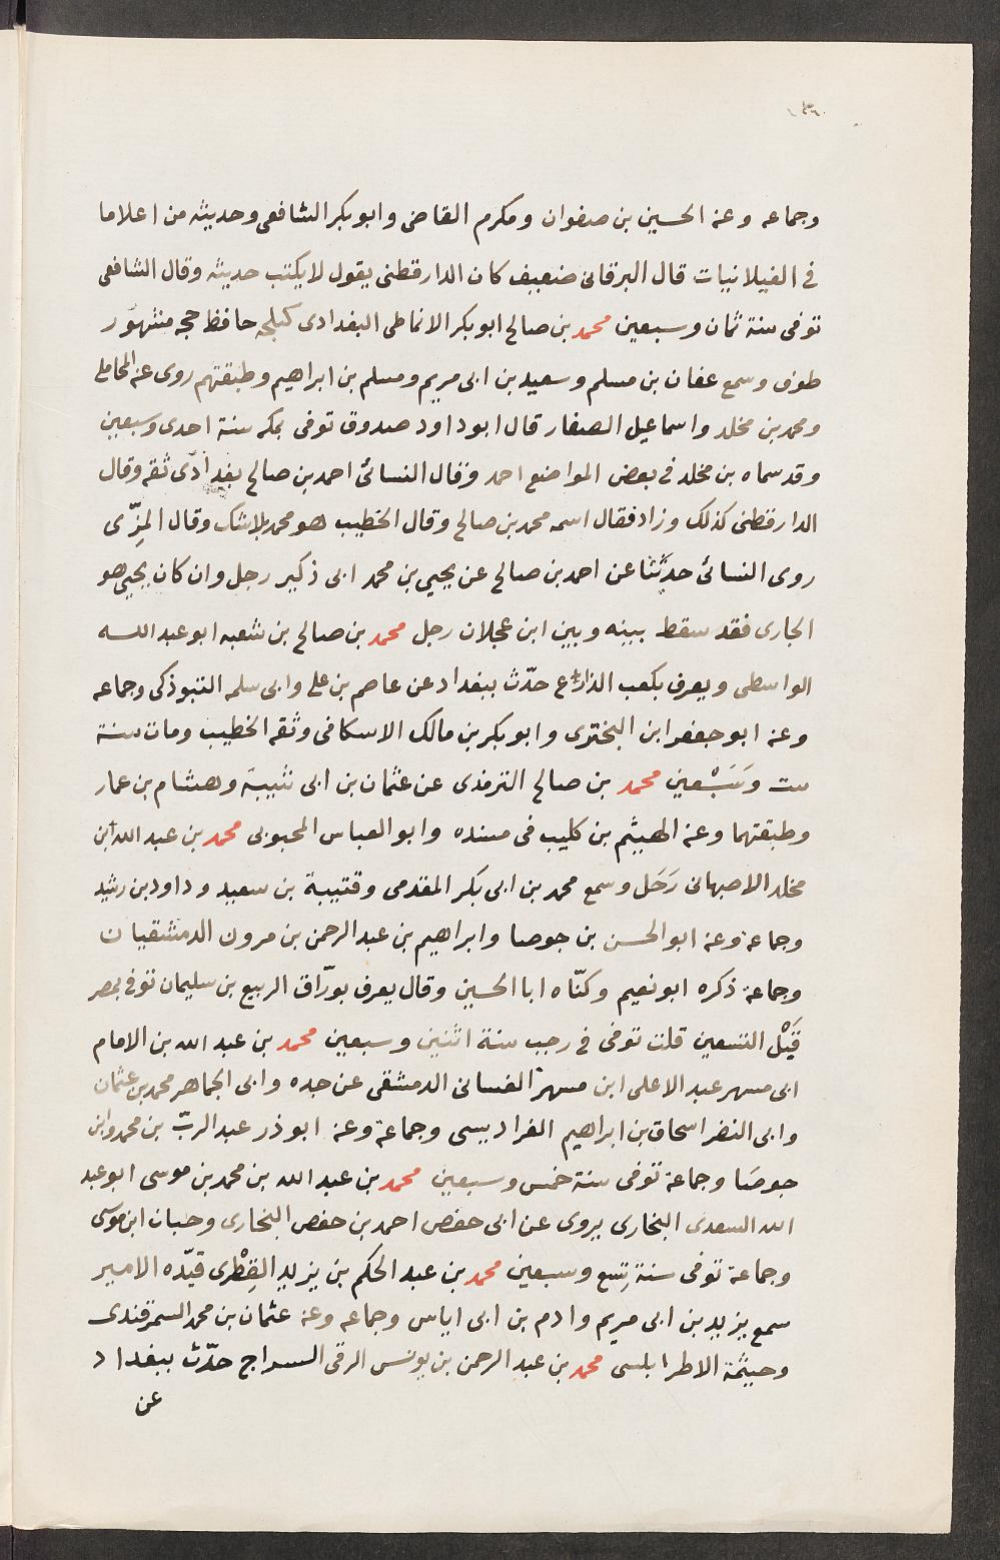 وجماعه وعنه الحسين بن صفوان ومكرم القاضى وابو بكر الشافعى وحديثه من اعلاما
فى الغيلانيات قال البرقانى ضعيف كان الدارقطنى يقول لا يكتب حديثه وقال الشافعى
توفى سنة ثمان وسبعين محمد بن صالح ابو بكر الانماطى البغدادى كيلجه حافظ حجه مشهور
طوف وسمع عفان بن مسلم وسعيد بن ابى مريم ومسلم بن ابراهيم وطبقتهم روى عنه المحاملى
ومحمد بن مخلد واسماعيل الصفار قال ابو داود صدوق توفى بمكه سنة احدى وسبعين
وقد سماه بن مخلد فى بعض المواضع احمد وقال النسائى احمد بن صالح بغدادى ثقه وقال
الدارقطنى كذلك وزاد فقال اسمه محمد بن صالح وقال الخطيب هو محمد بلا شك وقال المِزّى
روى النسائى حديثا عن احمد بن صالح عن يحيى بن محمد ابى زكير رجل وان كان يحيى هو
الجارى فقد سقط بينه وبين ابن عجلان رجل محمد بن صالح بن شعبه ابو عبد الله
الواسطى ويعرف بكعب الذارع حدّث ببغداد عن عاصم بن على وابى سلمه التبوذكى وجماعه
وعنه ابو جعفر ابن البخترى وابو بكر بن مالك الاسكافى وثقه الخطيب ومات سنة
ست وسَبْعين محمد بن صالح الترمذى عن عثمان بن ابى شيبة وهشام بن عمار
وطبقتهما وعنه الهيثم بن كليب فى مسنده وابو العباس المحبوبى محمد بن عبد الله ابن
مخلد الاصبهانى رَحَل وسمع محمد بن ابى بكر المقدمى وقتيبة بن سعيد وداود بن رشيد
وجماعة وعنه ابو الحسن بن جوصا وابراهيم بن عبد الرحمن بن مرون الدمشقيان
وجماعة ذكره ابو نعيم وكنّاه ابا الحسين وقال يعرف بورّاق الربيع بن سليمان توفى بمصر
قَبْل التسعين قلت توفى فى رجب سنة اثنين وسبعين محمد بن عبد الله بن الامام
ابى مسهر عبد الاعلى ابن مسهر الغسانى الدمشقى عن جده وابى الجماهر محمد بن عثمان
وابى النضر اسحاق بن ابراهيم الفراديسى وجماعة وعنه ابو ذر عبد الربّ بن محمد وابن
جوصَا وجماعة توفى سنة خمس وسبعين محمد بن عبد الله بن محمد بن موسى ابو عبد
الله السعدى البخارى يروى عن ابى حفص احمد بن حفص البخارى وحبان ابن موسى
وجماعة توفى سنة تِسع وسبعين محمد بن عبد الحكم بن يزيد القِطْرى قيّده الامير
سمع يزيد بن ابى مريم وادم بن ابى اياس وجماعه وعنه عثمان بن محمد السمرقندى
وحيثمة الاطرابلسى محمد بن عبد الرحمن بن يونس الرقى السراج حدّث ببغداد
عن